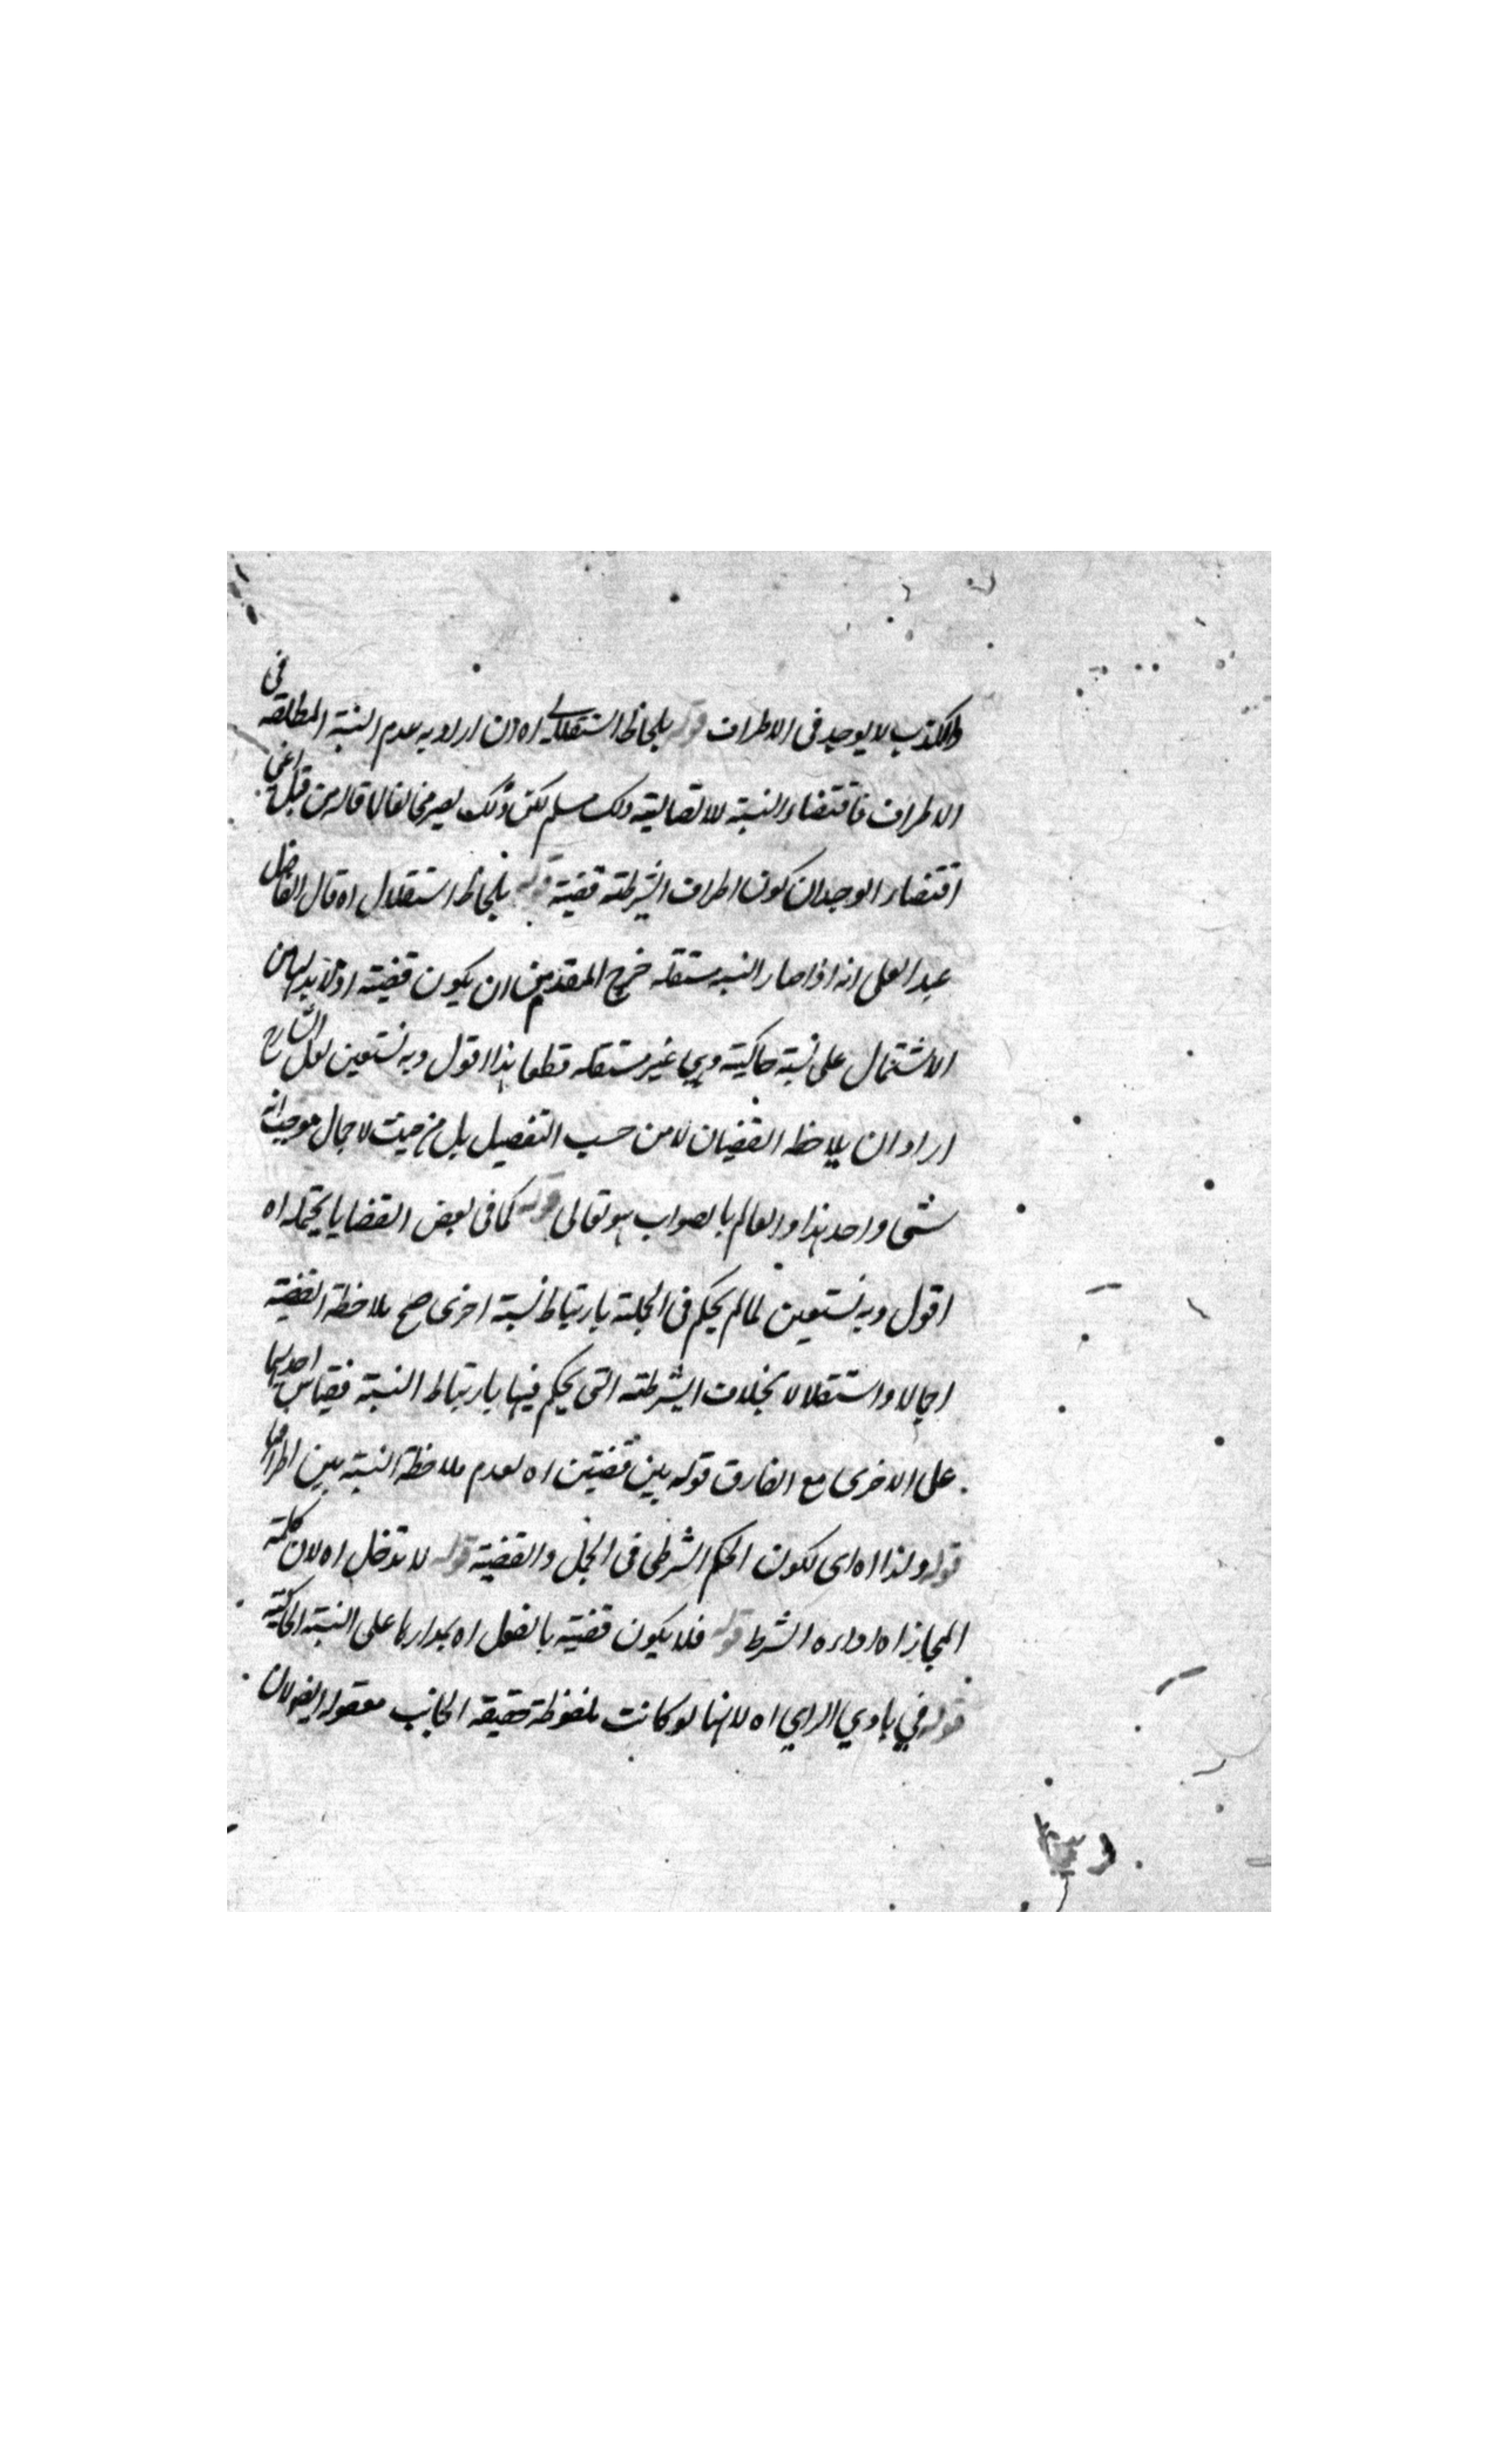 والكذب لا يوجد فى الاطراف قوله بلحاظ استقلالى اه ان اراد به عدم النسبة المطلقة فى
الاطراف فاقتضاء النسبة الاتصالية ذلك مسلم لكن ذلك يصير مخالفا لما قاله من قبل اعنى
اقتضاء الوجدان كون اطراف الشرطية قضية قوله بلحاظ استقلال اه قال الفاضل
عبد العلى انه اذا صار النسبة مستقلة خرج المقدم من ان يكون قضية اذ لا بد لها من
الاشتمال على نسبة حاكية وهي غير مستقلة قطعا هذا اقول وبه نستعين لعل الشارح
اراد ان يلاحظ القضيتان لا من حسب التفصيل بل من حيث الاجمال هو حيث انه
شئ واحد هذا والعالم بالصواب هو تعالى قوله كما فى بعض القضايا يحتمله اه
اقول وبه نستعين لما لم يحكم فى الحملية بارتباط نسبة اخرى صح ملاحظة القضية
اجمالا واستقلالا بخلاف الشرطية التى يحكم فيها بارتباط النسبة فقياس احديهما
على الاخرى مع الفارق قوله بين قضيتين اه لعدم ملاحظة النسبة بين اطرافها
قوله ولذا اه اى لكون الحكم الشرطى فى الحمل والقضية قوله لا تدخل اه لان كلمة
المجازاة اداة الشرط قوله فلا يكون قضية بالفعل اه مدارها على النسبة الحاكية
قوله في بادي الراي اه لانها لو كانت ملفوظة حقيقة الجانب معقولة ايضا لان